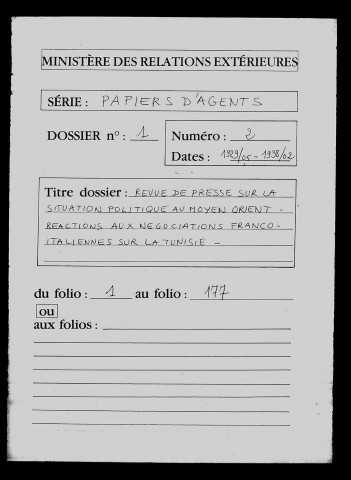 MINISTÈRE DES RELATIONS EXTÉRIEURES
SÉRIE : PAPIERS D'AGENTS
DOSSIER nº : 1
Numéro : 2
Dates : 1929/05-1938/02
Titre dossier : REVUE DE PRESSE SUR LA
SITUATION POLITIQUE AU MOYEN ORIENT -
REACTIONS AUX NEGOCIATIONS FRANCO-
ITALIENNES SUR LA TUNISIE -
du folio : 1 au folio : 177
ou
aux folios :